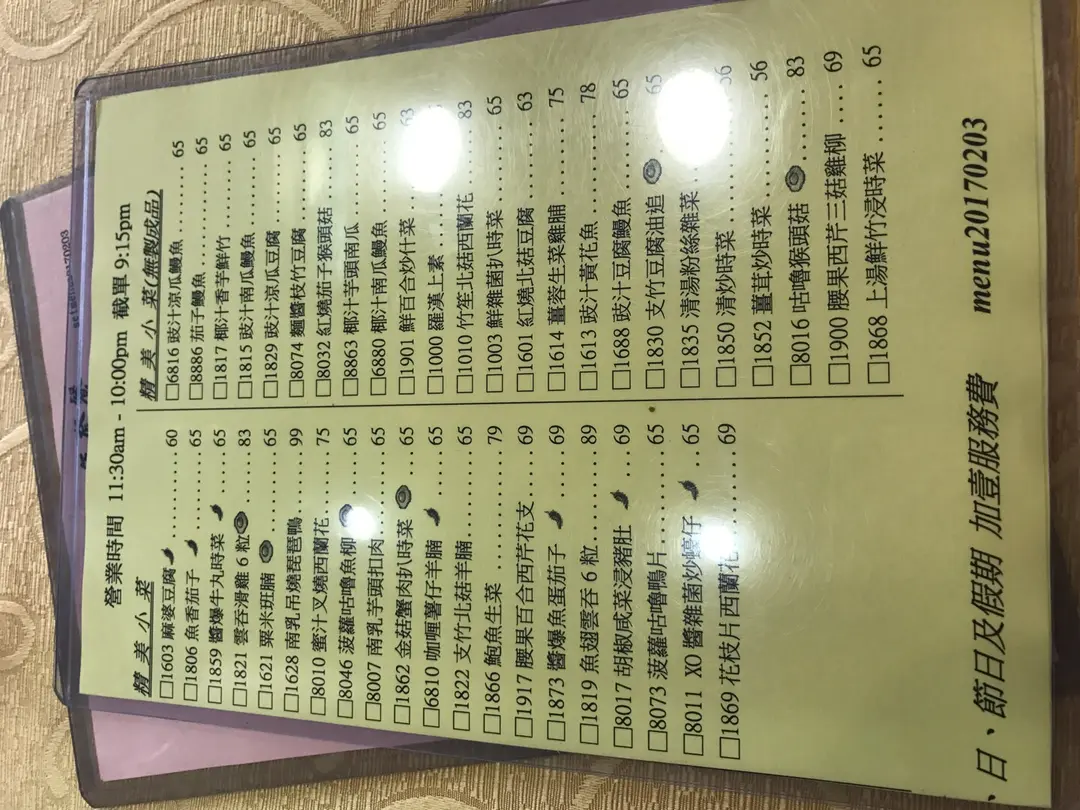 營業時間 11:30am - 10:00pm 截單 9:15pm
精 美 小 菜
□1603 麻婆豆腐 .......... 60
□1806 魚香茄子 .......... 65
□1859 醬爆牛丸時菜 ...... 65
□1821 雲吞滑雞 6 粒 ...... 83
□1621 粟米班腩 .......... 65
□1628 南乳吊燒琵琶鴨 ... 99
□8010 蜜汁叉燒西蘭花 ... 75
□8046 菠蘿咕嚕魚柳 ...... 65
□8007 南乳芋頭扣肉 ...... 65
□1862 金菇蟹肉扒時菜 ... 65
□6810 咖喱薯仔羊腩 ...... 65
□1822 支竹北菇羊腩 ...... 65
□1866 鮑魚生菜 .......... 79
□1917 腰果百合西芹花支 ... 69
□1873 醬爆魚蛋茄子 ...... 69
□1819 魚翅雲吞 6 粒 ...... 89
□8017 胡椒咸菜浸豬肚 ... 69
□8073 菠蘿咕嚕鴨片 ...... 65
□8011 XO 醬雜菌炒蟶仔 ... 65
□1869 花枝片西蘭花 ...... 69
精 美 小 菜(無製成品)
□6816 豉汁涼瓜鰻魚 ...... 65
□8886 茄子鰻魚 .......... 65
□1817 椰汁香芋鮮竹 ...... 65
□1815 豉汁南瓜鰻魚 ...... 65
□1829 豉汁涼瓜豆腐 ...... 65
□8074 麵醬枝竹豆腐 ...... 65
□8032 紅燒茄子猴頭菇 ... 83
□8863 椰汁芋頭南瓜 ...... 65
□6880 椰汁南瓜鰻魚 ...... 65
□1901 鮮百合炒什菜 ...... 63
□1000 羅漢上素
□1010 竹笙北菇西蘭花 ... 83
□1003 鮮雜菌扒時菜 ...... 65
□1601 紅燒北菇豆腐 ...... 63
□1614 薑蓉生菜雞腩 ...... 75
□1613 豉汁黃花魚 ........ 78
□1688 豉汁豆腐鰻魚 ...... 65
□1830 支竹豆腐油追 ...... 65
□1835 清湯粉絲雜菜 ...... 56
□1850 清炒時菜
□1852 薑茸炒時菜 ........ 56
□8016 咕嚕猴頭菇 ........ 83
□1900 腰果西芹三菇雞柳 .... 69
□1868 上湯鮮竹浸時菜 ...... 65
、日、節日及假期 加壹服務費 menu20170203